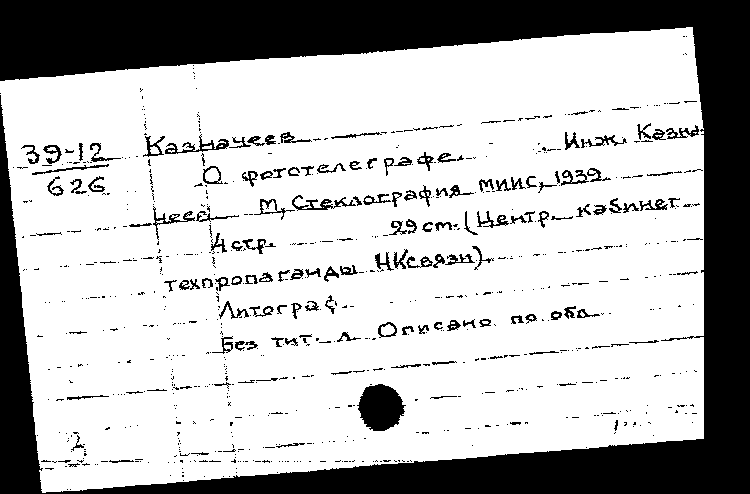 39-12
626
Казначеев
О фототелеграфе. Инж. Казна-
чеев М, Стеклография МИИС, 1939
4 стр. 29 см. (Центр. кабинет
техпропаганды НКсвязи).
Литограф.
Без тит. л. Описано по обл.
3